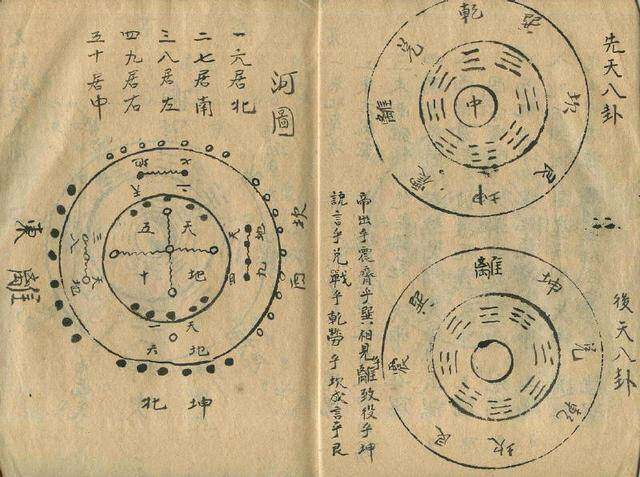 先天八卦
乾
巽
坎
艮
坤
震
離
兌
中
後天八卦
離
坤
兌
乾
坎
艮
帝出乎震齊乎巽相見乎離致役乎坤
説言乎兌戰乎乾勞乎坎成言乎艮
河圖
一六居北
二七居南
三八居左
四九居右
五十居中
七
地
二
天
坎
西
東
離
三
天
八
地
天
五
地
十
天
一
地
六
坤
北